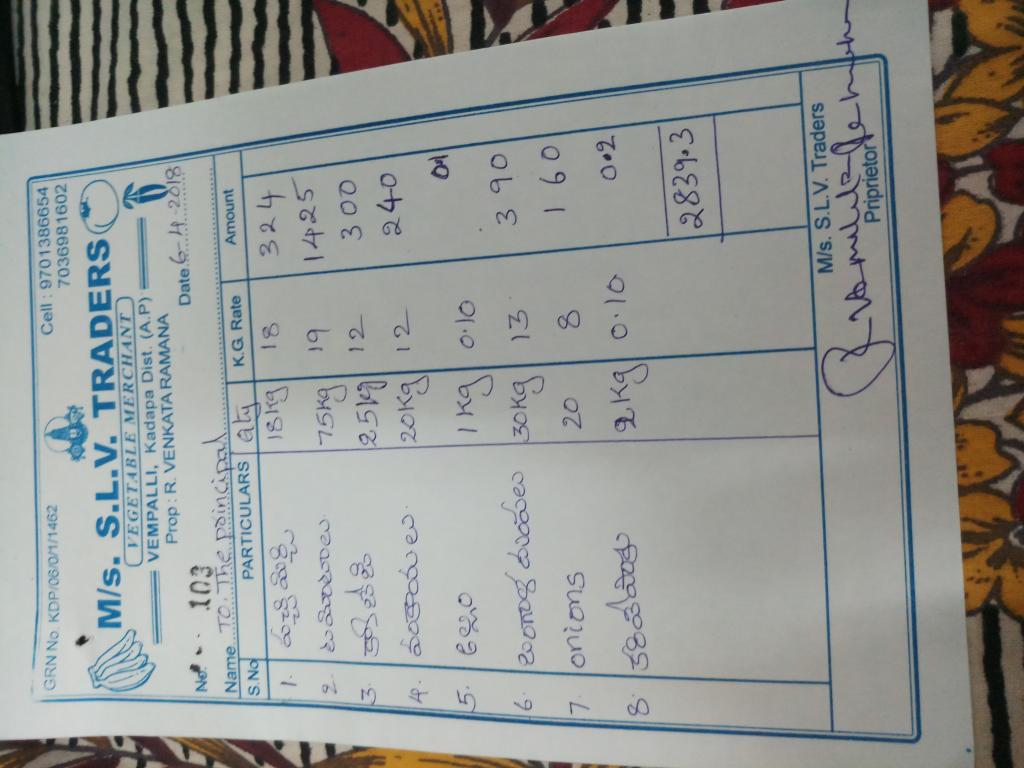 GRN No. KDP/06/0/1/1462 Cell : 9701386654
7036981602
M/s. S.L.V. TRADERS
VEGETABLE MERCHANT
VEMPALLI, Kadapa Dist. (A.P)
Prop : R. VENKATA RAMANA
No. 103 Date 6-4-2018
Name TO. The principal
S.No PARTICULARS Qty K.G. Rate Amount
1. పచ్చి మిర్చి 18kg 18 324
2. టమోటాలు. 75kg 19 1425
3. 25kg 12 300
4. వంకాయలు. 20kg 12 240
5. అల్లం 1kg 0.10 01
6. బంగాళ దుంపలు 30kg 13 390
7. onions 20 8 160
8. కరివేపాకు 2kg 0.10 0.2
2839.3
M/s. S.L.V. Traders
Priprietor